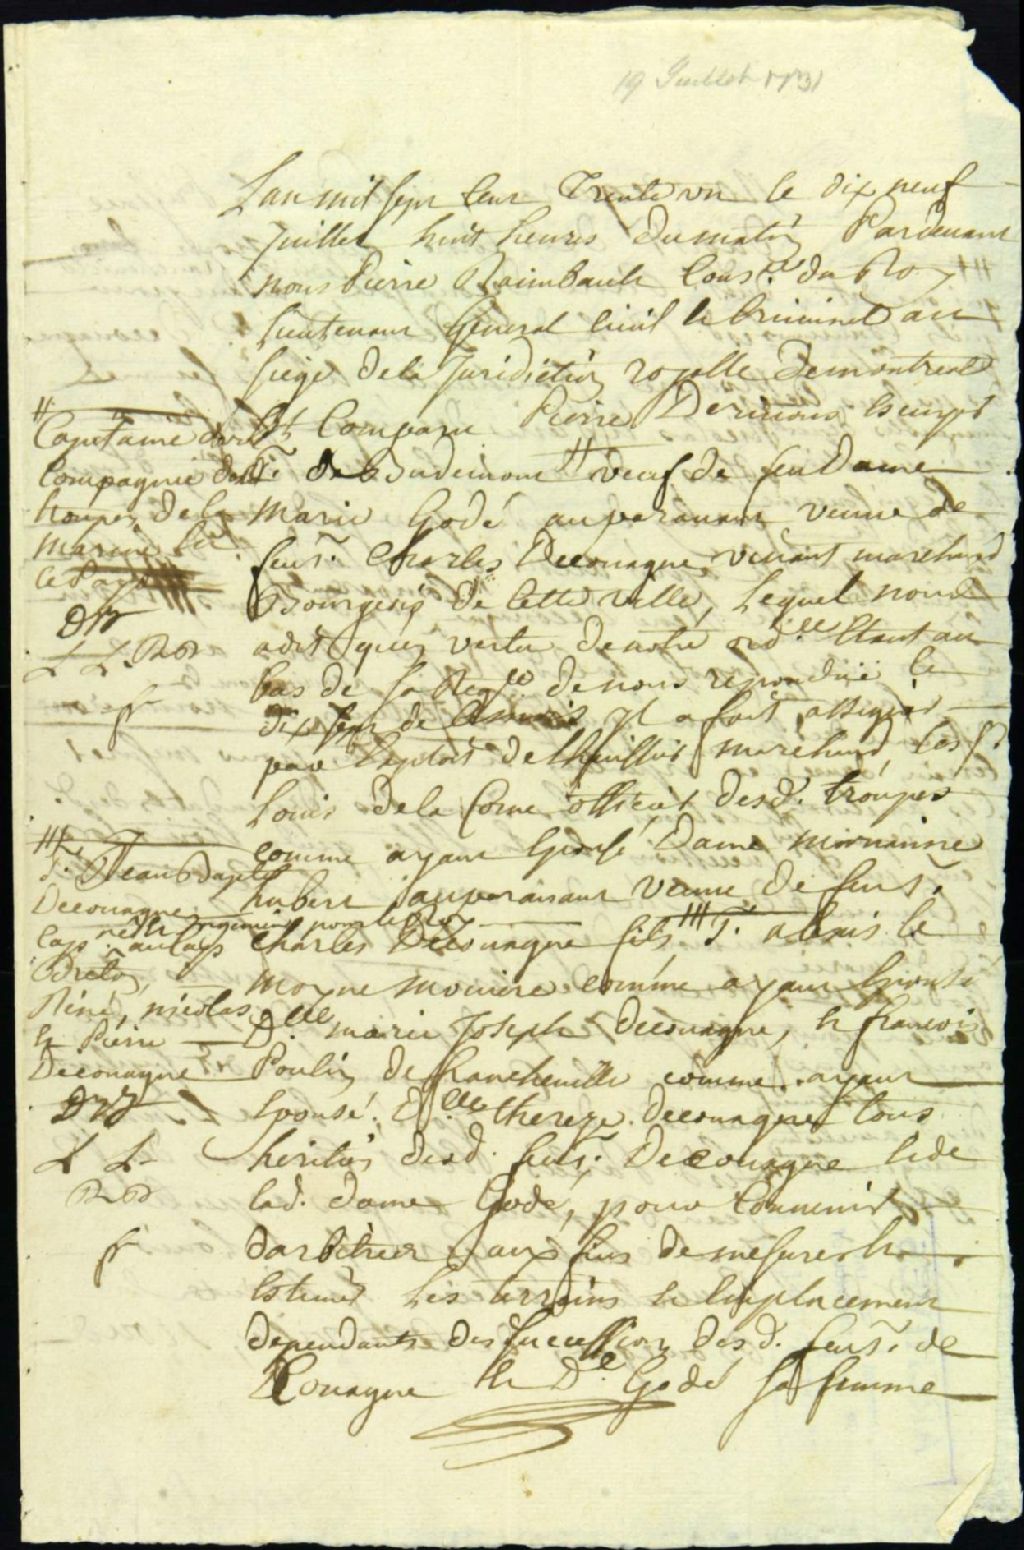 19 Juillet 1731
Lan mil sept cent Trente un le dix neuf
Juillet huit heures du matin Pardevant
nous Pierre Raimbault Cons.er du Roy
lieutenant General civil & criminel au
siege de la Juridiction royalle de montreal
Est Comparu Pierre Derivieres Escuyer
Sr. de Budemont # veuf de feu Dame
Marie Godé auparavant veuve de
feu Sr. Charles Decouagne vivant marchand
Bourgeois de cette ville, Lequel nous
a dit qu'en vertu de notre ord.ce Etant au
bas de sa Req.te de nous repondüe le
dix sept de il a fait assigner
par Exploit de lhuissier marchand, les Srs
Louis de la Corne officier desd. troupes
comme ayant Epousé Dame marianne
hubert auparavant veuve de feu Sr.
Charles Decouagne fils ### Sr. alexis le
moyne moniere comme ayant Epousé
D.lle marie Joseph Decouagne, & francois
Poulin de francheville comme ayant
Epousé D.lle thereze Decouagne tous
heritiers desd. feu Sr. Decouagne & de
lad. dame Godé, pour Convenir
darbitres aux fins de mesurer &
Estimer Les terrains & Emplacement
dependants des Succession desd. feu Sr. de
Couagne & De. Godé sa femme
#
Capitaine dune
Compagnie des
troupes de la
marine En
ce Pays
L L. RB
###
Sr. Jean Bapte
Decouagne
Cap.ne au Cap
Breton,
Réné, nicolas
& Pierre
Decouagne
L L
RB